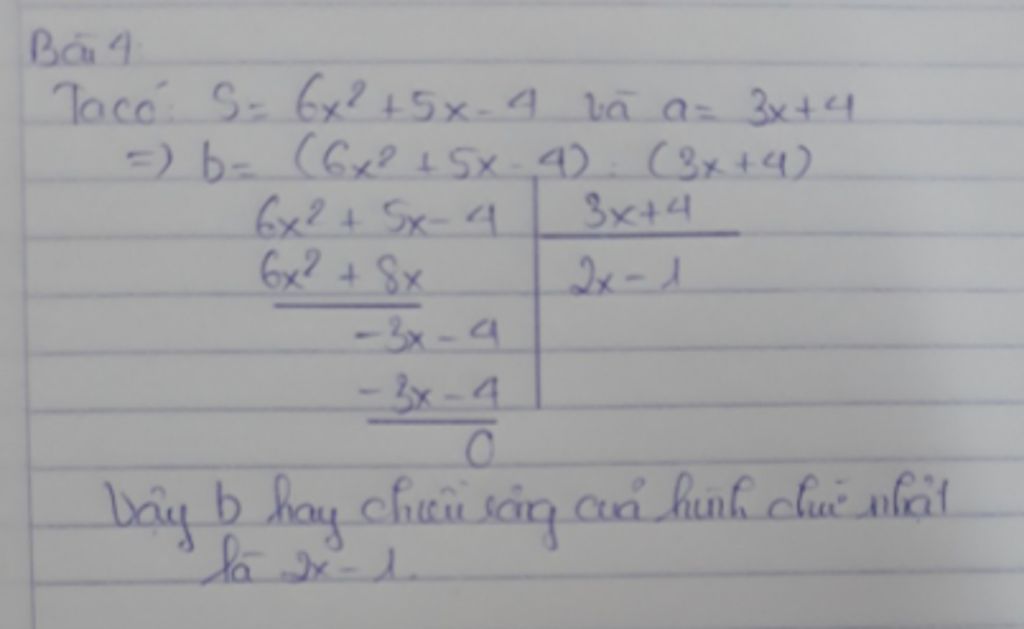 Bài 4
Ta có: S = 6x² + 5x - 4 và a = 3x + 4
=> b = (6x² + 5x - 4) : (3x + 4)
6x² + 5x - 4 | 3x + 4
6x² + 8x | 2x - 1
-3x - 4
-3x - 4
0
Vậy b hay chiều rộng của hình chữ nhật
là 2x - 1.